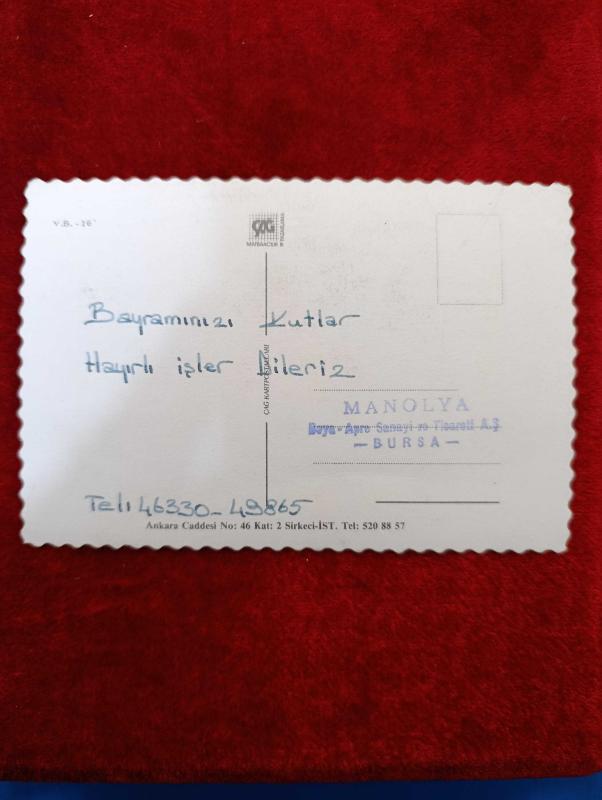 V.B. - 16
ÇAĞ
MATBAACILIK
PAZARLAMA
Bayramınızı Kutlar
Hayırlı işler Dileriz
ÇAĞ KARTPOSTALLARI
MANOLYA
Boya - Apre Sanayi ve Ticareti A.Ş
— BURSA —
Tel: 46330 - 49865
Ankara Caddesi No: 46 Kat: 2 Sirkeci-İST. Tel: 520 88 57